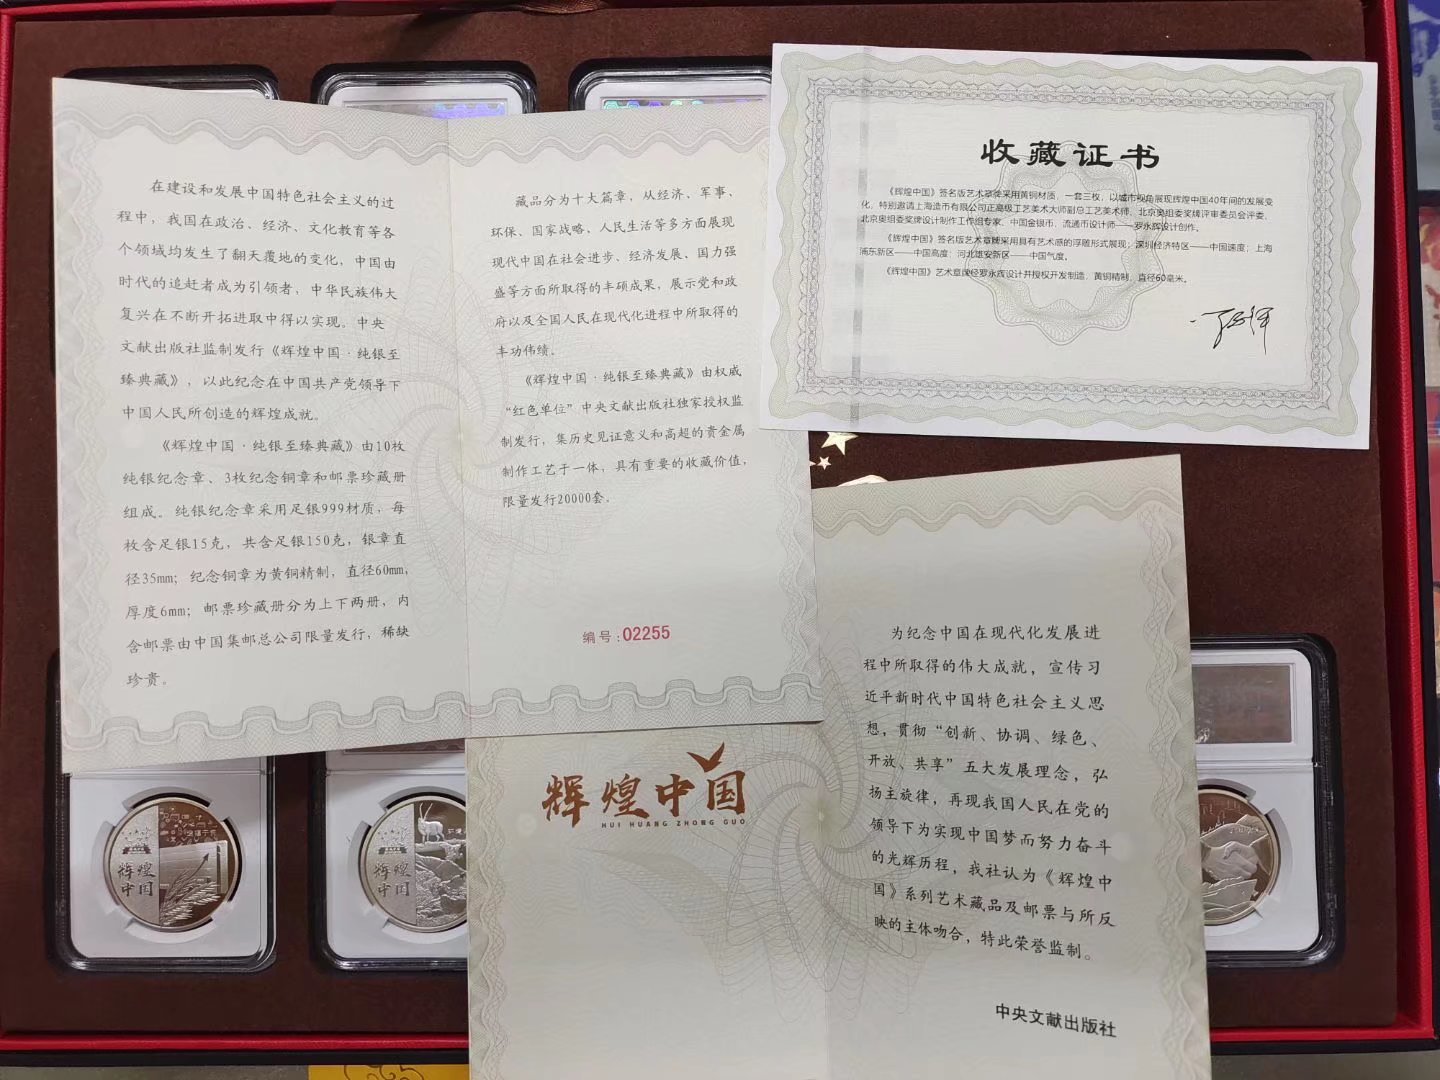 在建设和发展中国特色社会主义的过
程中，我国在政治、经济、文化教育等各
个领域均发生了翻天覆地的变化，中国由
时代的追赶者成为引领者，中华民族伟大
复兴在不断开拓进取中得以实现。中央
文献出版社监制发行《辉煌中国·纯银至
臻典藏》，以此纪念在中国共产党领导下
中国人民所创造的辉煌成就。
《辉煌中国·纯银至臻典藏》由10枚
纯银纪念章、3枚纪念铜章和邮票珍藏册
组成。纯银纪念章采用足银999材质，每
枚含足银15克，共含足银150克，银章直
径35mm；纪念铜章为黄铜精制，直径60mm，
厚度6mm；邮票珍藏册分为上下两册，内
含邮票由中国集邮总公司限量发行，稀缺
珍贵。
藏品分为十大篇章，从经济、军事、
环保、国家战略、人民生活等多方面展现
现代中国在社会进步、经济发展、国力强
盛等方面所取得的丰硕成果，展示党和政
府以及全国人民在现代化进程中所取得的
丰功伟绩。
《辉煌中国·纯银至臻典藏》由权威
“红色单位”中央文献出版社独家授权监
制发行，集历史见证意义和高超的贵金属
制作工艺于一体，具有重要的收藏价值，
限量发行20000套。
编号:02255
收藏证书
《辉煌中国》签名版艺术章牌采用黄铜材质，一套三枚，以城市视角展现辉煌中国40年间的发展变
化，特别邀请上海造币有限公司正高级工艺美术大师副总工艺美术师、北京奥组委奖牌评审委员会评委、
北京奥组委奖牌设计制作工作组专家、中国金银币、流通币设计师——罗永辉设计创作。
《辉煌中国》签名版艺术章牌采用具有艺术感的浮雕形式展现：深圳经济特区——中国速度；上海
浦东新区——中国高度；河北雄安新区——中国气度。
《辉煌中国》艺术章牌经罗永辉设计并授权开发制造，黄铜精制，直径60毫米。
辉煌中国
HUI HUANG ZHONG GUO
为纪念中国在现代化发展进
程中所取得的伟大成就，宣传习
近平新时代中国特色社会主义思
想，贯彻“创新、协调、绿色、
开放、共享”五大发展理念，弘
扬主旋律，再现我国人民在党的
领导下为实现中国梦而努力奋斗
的光辉历程，我社认为《辉煌中
国》系列艺术藏品及邮票与所反
映的主体吻合，特此荣誉监制。
中央文献出版社
辉煌
中国
辉煌
中国